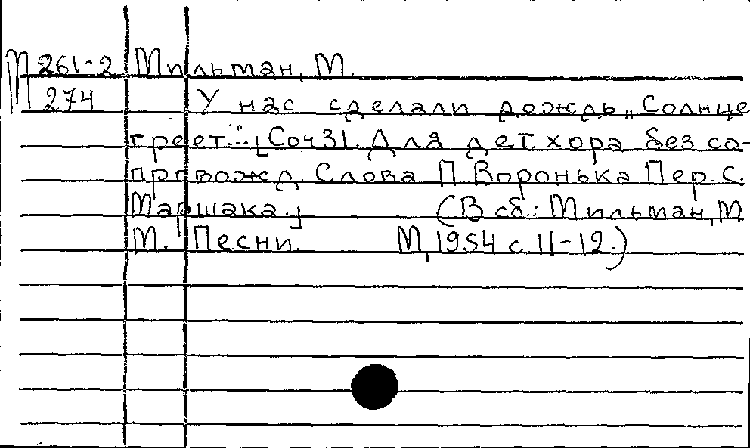 М 261-2 Мильман, М.
М 274 У нас сделали дождь „Солнце
греет..." [Соч 31. Для дет хора без со-
провожд. Слова П. Воронька Пер. С.
Маршака.] (В сб: Мильман, М.
М. Песни. М, 1954 с. 11-12.)